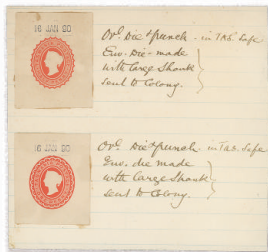 16 JAN 90
Orl. Die & punch - in Tas. Safe
Env. Die - made
with large Shank
sent to Colony.
16 JAN 90
Orl. Die & punch - in Tas. Safe
Env. die made
with large Shank
sent to Colony.